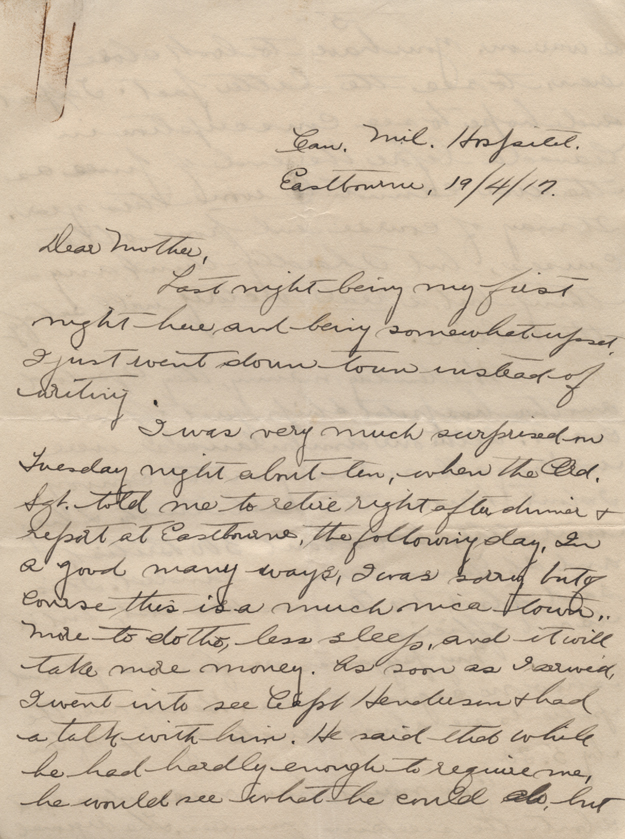 Can. Mil. Hospital.
Eastbourne, 19/4/17.
Dear Mother,
Last night being my first
night here, and being somewhat upset,
I just went down town instead of
writing.
I was very much surprised on
Tuesday night about ten, when the Ord.
Sgt. told me to retire right after dinner &
report at Eastbourne, the following day. In
a good many ways, I was sorry but of
course this is a much nice town,.
More to do tho, less sleep, and it will
take more money. As soon as I arrived,
I went in to see Capt Henderson & had
a talk with him. He said that while
he had hardly enough to require me,
he would see what he could do, but